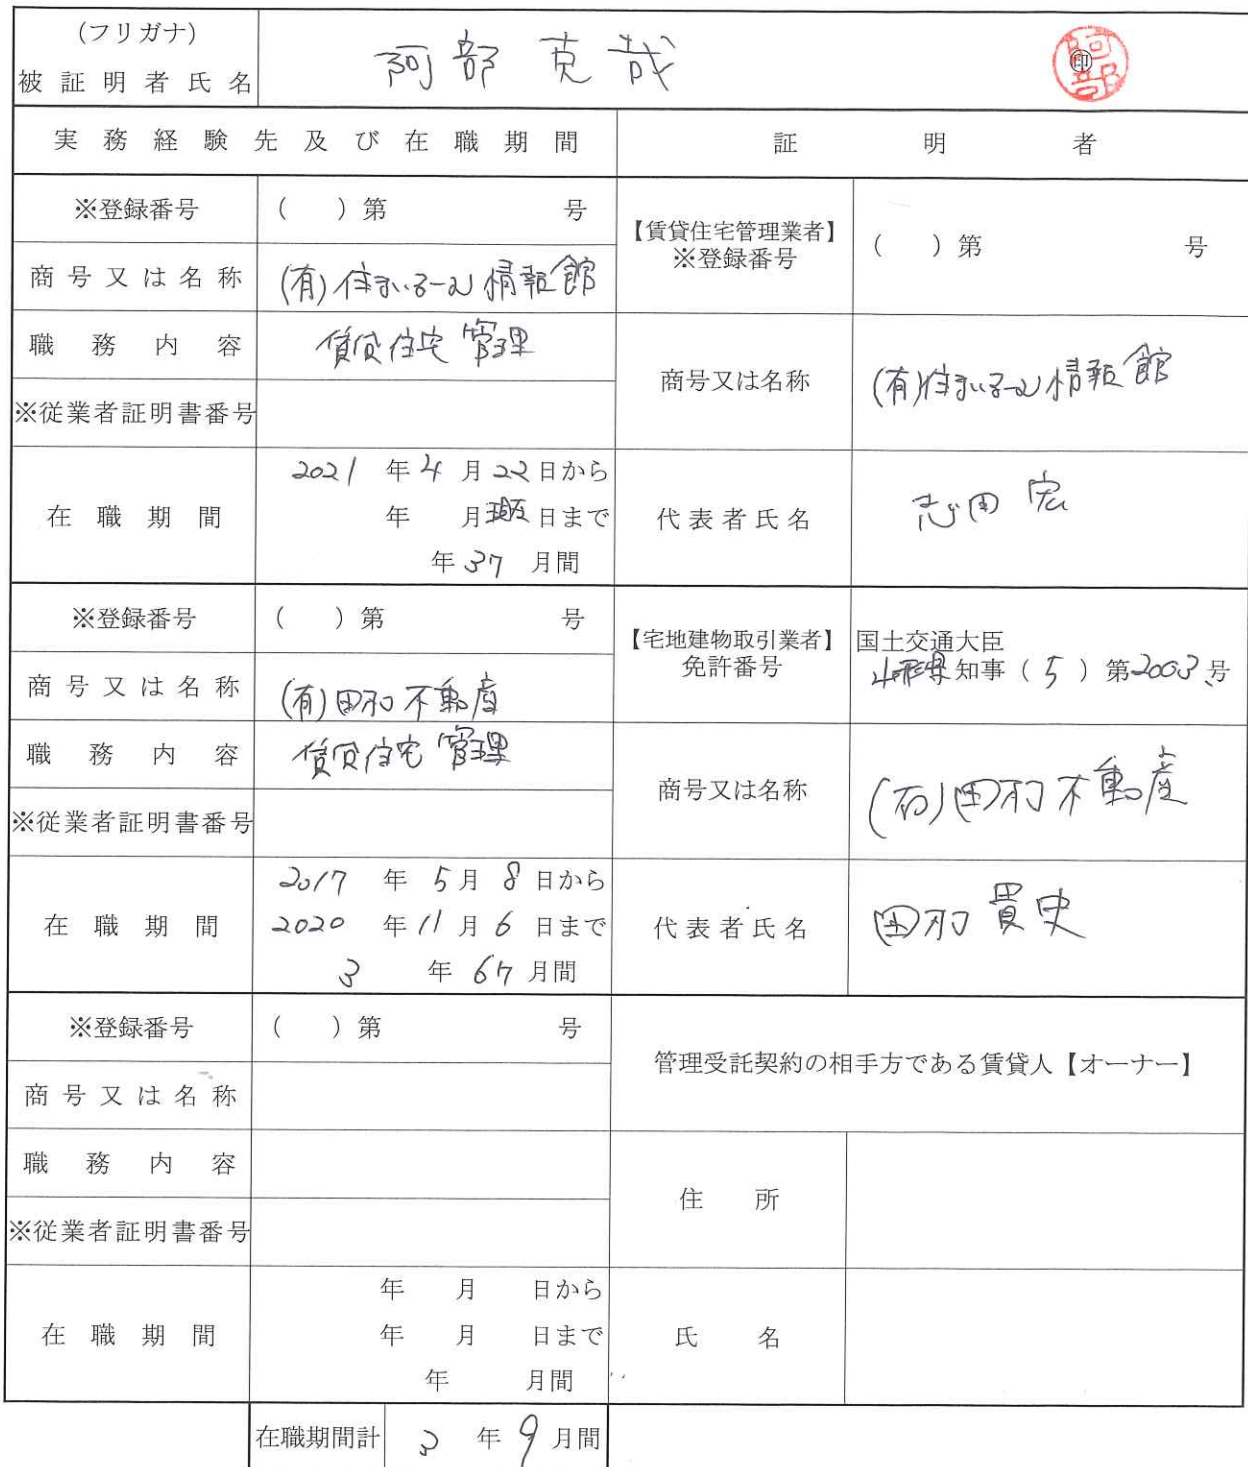 (フリガナ)
被証明者氏名 阿部 克哉 印 阿部
実務経験先及び在職期間 証明者
※登録番号 ( ) 第 号
商号又は名称 (有)住まいるーむ情報館
職務内容 賃貸住宅管理
※従業者証明書番号
在職期間 2021 年 4 月 22 日から
年 月 現在 日まで
年 3ヶ 月間
【賃貸住宅管理業者】
※登録番号 ( ) 第 号
商号又は名称 (有)住まいるーむ情報館
代表者氏名 志田 宏
※登録番号 ( ) 第 号
商号又は名称 (有)田刈不動産
職務内容 賃貸住宅管理
※従業者証明書番号
在職期間 2017 年 5 月 8 日から
2020 年 11 月 6 日まで
3 年 6ヶ 月間
【宅地建物取引業者】
免許番号 国土交通大臣
山形県 知事 ( 5 ) 第 2003 号
商号又は名称 (有)田刈不動産
代表者氏名 田刈 貴史
※登録番号 ( ) 第 号
商号又は名称
職務内容
※従業者証明書番号
在職期間 年 月 日から
年 月 日まで
年 月間
管理受託契約の相手方である賃貸人【オーナー】
住所
氏名
在職期間計 3 年 9 月間